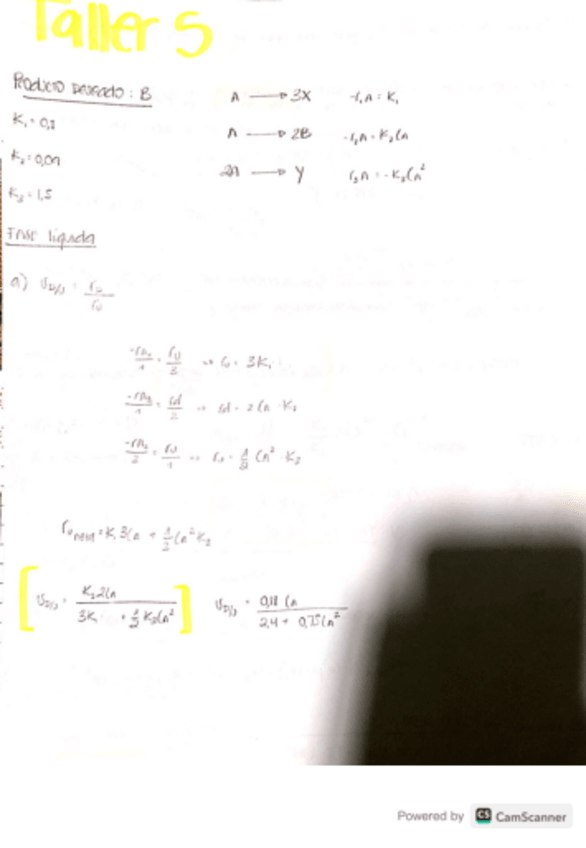 Taller 5
Producto Deseado : B
A → 3X -r₁A = K₁
K₁ = 0,8
A → 2B -r₂A = K₂CA
K₂ = 0,09
2A → Y r₃A = -K₃CA²
K₃ = 1,5
Fase liquida
a) S D/U = rD / rU
-rA₁ / 1 = rU / 3 → rU = 3K₁
-rA₂ / 1 = rd / 2 → rd = 2CA · K₂
-rA₃ / 2 = rU / 1 → rU = 1/2 CA² · K₃
rU neta = K 3CA + 1/2 CA² K₃
S D/U = K₂2CA / 3K₁ + 1/2 K₃CA² S D/U = 0,18 CA / 2,4 + 0,75CA²
Powered by CS CamScanner